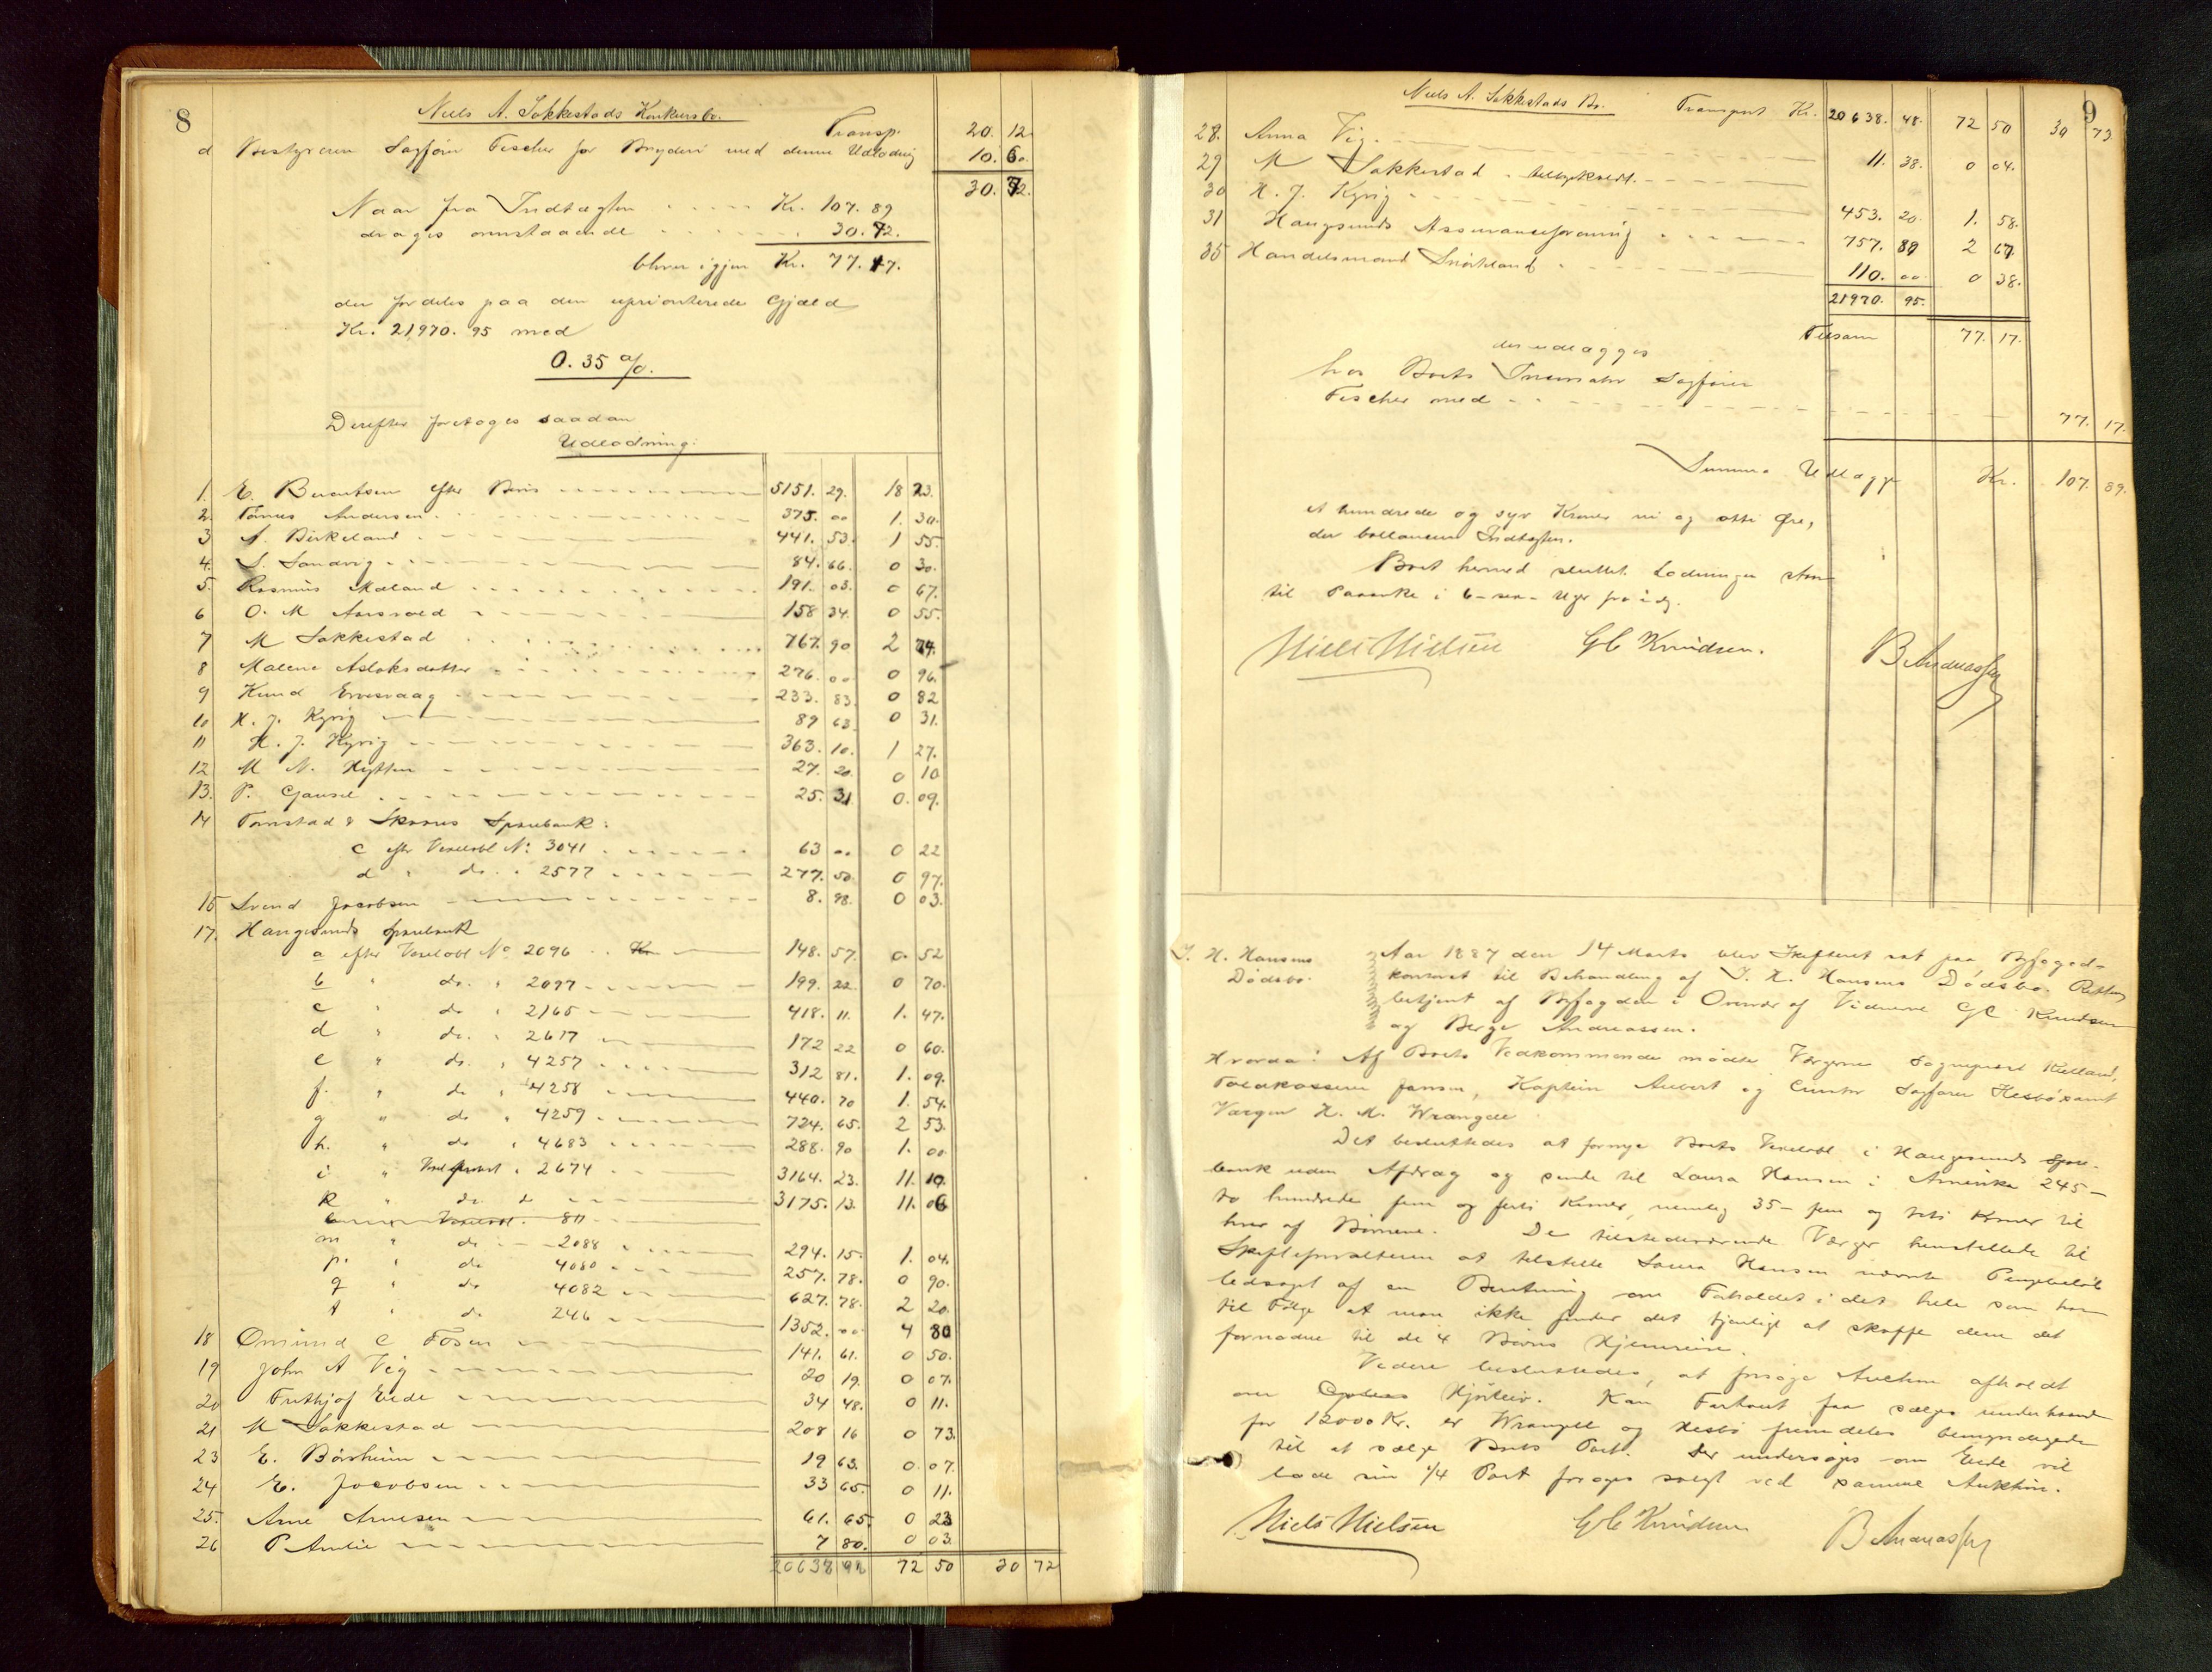 8
Niels A. Sakkestads Konkursbo.
Transp. 20. 12.
d Bestyreren Sagfører Fischer for Bryderi med denne Udlodning 10. 60.
30. 72.
Naar fra Indtægten Kr. 107. 89
drages ovenstaaende 30. 72.
bliver igjen Kr. 77. 17.
der fordeles paa den uprioriterede Gjæld
Kr. 21,970. 95 med
0. 35 %.
Derefter foretoges saadan
Udlodning:
1. E. Berentsen efter Bevis 5151. 29. 18 23.
2. Tønnes Andersen 375. 00 1. 30.
3 A. Birkeland 441. 53. 1 55.
4. S. Sandvig 84. 66. 0 30.
5. Rasmus Mæland 191. 03. 0 67.
6 O. M Aarsvold 158 34. 0 55.
7 M Sakkestad 767. 90 2 74.
8 Malene Aslaksdatter 276. 00 0 96.
9 Knud Ervesvaag 233. 83. 0 82
10 H. J. Kyvig 89 63 0 31.
11 H. J. Kyvig 363. 10. 1 27.
12 M N. Hytten 27. 20. 0 10
13. P. Gausel 25. 31 0. 09.
14 Tornstad & Skaares Sparebank:
c efter Vexelobl No 3041 63 00 0 22
d " do. " 2577 277. 50 0 97.
15 Svend Jacobsen 8. 98. 0 03.
17. Haugesunds Sparebank
a efter Vexelobl No 2096 148. 57. 0. 52
b " do. " 2097 199. 22. 0 70.
c " do " 2165 418. 11. 1. 47.
d " do. " 2617 172 22 0 60.
e " do. " 4257 312 81. 1. 09.
f. " do " 4258 440. 70 1. 54.
g " do " 4259 724. 65. 2 53.
h. " do " 4683 288. 90 1. 00
i " " 2674 3164. 23. 11. 10.
k " do. 3175. 13. 11. 06
Vexelobl. 811
m " do 2088 294. 15. 1. 04.
p. " do 4080 257. 78. 0 90.
q " do 4082 627. 78. 2 20.
t " do 246 1352. 00 4 80
18 Omund C Fosen 141. 61. 0 50.
19 John A Vig 20 19. 0 07.
20 Frithjof Eide 34 48. 0 11.
21 M Sakkestad 208 16 0 73.
23 E. Børsheim 19 63. 0. 07.
24 E. Jacobsen 33 65. 0 11.
25. Arne Arnesen 61. 65. 0 23
26 P. 7 80. 0 03.
20638 48 72 50 30 72
9
Niels A. Sakkestads Bo. Transport Kr. 20638. 48. 72 50 30 73
28. Anna Vig 11. 38. 0 04.
29 M Sakkestad
30 H. J. Kyvig 453. 20 1. 58.
31 Haugesunds Assuranceforening 757. 89 2 67.
35 Handelsmand 110. 00 0 38.
21970. 95.
Tilsam 77. 17.
der udlægges
hos Boets Sagfører
Fischer med 77. 17.
Summa Udlægge Kr. 107. 89.
et hundrede og syv Kroner ni og otti Øre,
der ballancerer Indtægten.
Boet hermed sluttet. Lodningen staar
til Paaanke i 6 - sex - Uger fra idag.
Niels Nielsen GC Knudsen. B Andreassen
J. H. Hansens
Dødsbo.
Aar 1887 den 14 Marts blev Skifteret sat paa Byfoged-
kontoret til Behandling af J. H. Hansens Dødsbo. Retten
betjent af Byfogden i Overvær af Vidnerne GC Knudsen
og Berge Andreassen.
Hvorda: Af Boets Vedkommende mødte Værgerne Sognepræst Kielland,
Toldkasserer Jansen, Kaptein Aubert og Curator Sagfører Hesbø samt
Værgen H. M. Wrangell.
Det besluttedes at fornye Boets Vexelobl i Haugesunds Spare-
bank uden Afdrag og sende til Laura Hansen i Amerika 245 -
to hundrede fem og forti Kroner, nemlig 35 - fem og treti Kroner til
hver af Børnene. De tilstedeværende Værger henstillede til
Skifteforvalteren at tilstille Laura Hansen nævnte Pengebeløb
ledsaget af en Beretning om Forholdet i det hele som hun
til Følge at man ikke finder det tjenligt at skaffe dem det
fornødne til de 4 Børns Hjemreise.
Videre besluttedes, at forsøge Auction afholdt
over Hjørleiv. Kan Fartøiet faa sælges underhaanden
for 12000 Kr. er Wrangell og Hesbø fremdeles bemyndigede
til at sælge Boets Part. Der undersøges om Eide vil
lade sin 1/4 Part forsøges solgt ved samme Auktion.
Niels Nielsen GC Knudsen B Andreassen